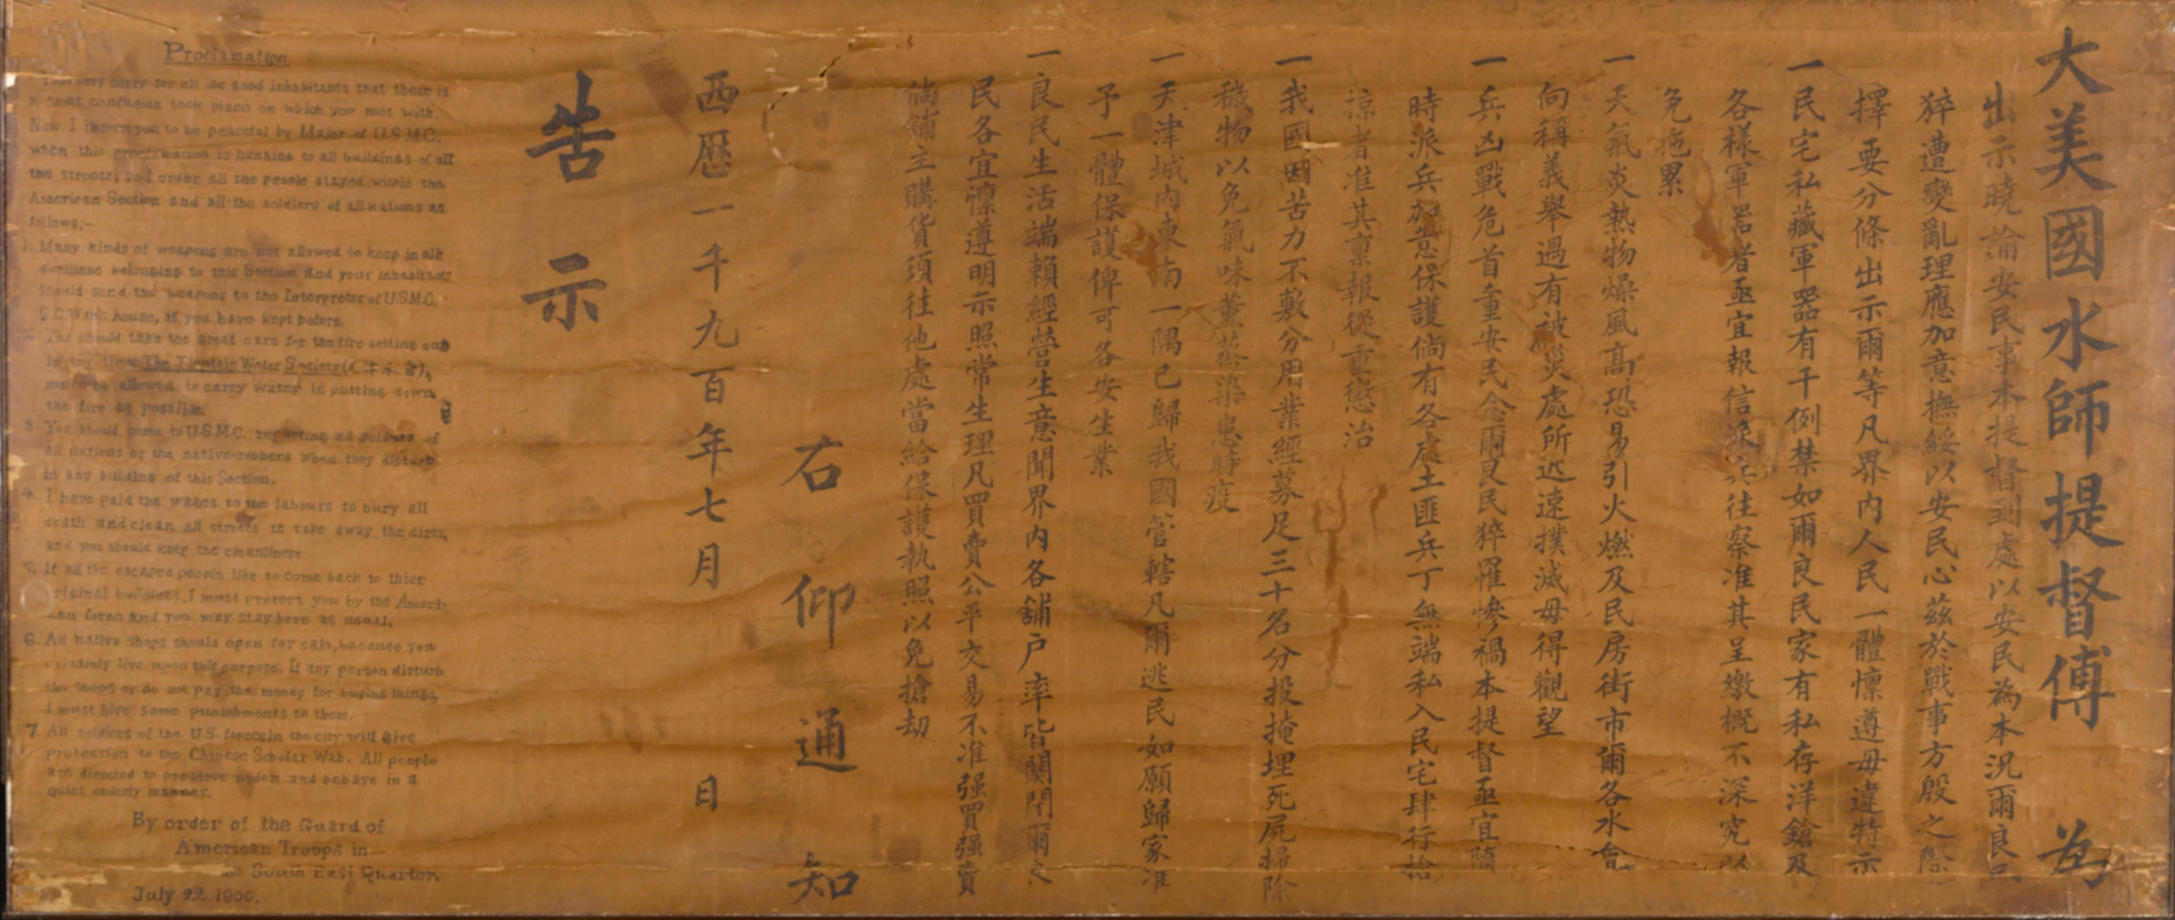 大美國水師提督傅 為
出示曉諭安民事本提督到處以安民為本況爾良民
猝遭變亂理應加意撫綏以安民心茲於戰事方殷之際
擇要分條出示爾等凡界內人民一體懍遵毋違特示
一民宅私藏軍器有干例禁如爾良民家有私存洋鎗及
各樣軍器者亟宜報信派兵往察准其呈繳概不深究以
免拖累
一天氣炎熱物燥風高恐易引火燃及民房街市爾各水會
向稱義舉遇有被災處所迅速撲滅毋得觀望
一兵凶戰危首重安民念爾良民猝罹慘禍本提督亟宜隨
時派兵加意保護倘有各處土匪兵丁無端私入民宅肆行搶
掠者准其稟報從重懲治
一我國因苦力不敷分用業經募足三十名分投掩埋死屍掃除
穢物以免氣味薰蒸染患時疫
一天津城內東南一隅已歸我國管轄凡爾逃民如願歸家准
予一體保護俾可各安生業
一良民生活端賴經營生意聞界內各舖户率皆關閉爾良
民各宜懍遵明示照常生理凡買賣公平交易不准强買强賣
倘舖主購貨須往他處當給保護執照以免搶劫
右仰通知
西歷一千九百年七月 日
告示
Proclamation
I am very sorry for all the good inhabitants that there is
a great confusion took place on which you met with.
Now I inform you to be peaceful by Major of U.S.M.C.
when this proclamation is hanging to all buildings of all
the streets; so I order all the people stayed within the
American Section and all the soldiers of all nations as
follows:-
1. Many kinds of weapons are not allowed to keep in all
dwellings belonging to this Section and your inhabitants
should send the weapons to the Interpreter of U.S.M.C.
S.C.Wah's house, if you have kept before.
2. You should take the great care for the fire setting out
in any time. The Tientsin Water Society (天津水會),
must be allowed to carry water in putting down
the fire as possible.
3. You should come to U.S.M.C. reporting all soldiers of
all nations or the native-robbers when they disturb
in any building of this Section.
4. I have paid the wages to the labours to bury all
death and clean all streets to take away the dirts,
and you should keep the cleanliness
5. If all the escaped people like to come back to thier
original buildings, I must protect you by the Ameri-
can force and you may stay here as usual.
6. All native shops should open for sale, because you
certainly live upon this purpose. If any person disturb
the shops or do not pay the money for buying things,
I must give some punishments to them.
7. All soldiers of the U.S. forces in the city will give
protection to the Chinese Scholar Wah. All people
are directed to preserve order and behave in a
quiet orderly manner.
By order of the Guard of
American Troops in
the South East Quarter.
July 22, 1900.